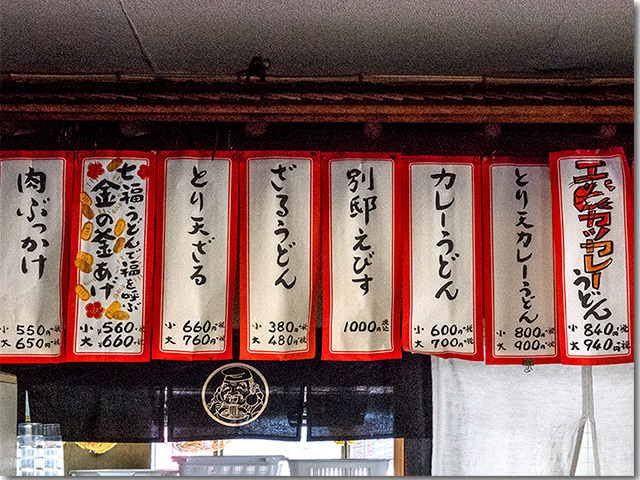 肉ぶっかけ
小 550円+税
大 650円+税
七福うどんで福を呼ぶ
金の釜あげ
小 560円+税
大 660円+税
とり天ざる
小 660円+税
大 760円+税
ざるうどん
小 380円+税
大 480円+税
別邸えびす
1000円 税込
カレーうどん
小 600円+税
大 700円+税
とり天カレーうどん
小 800円+税
大 900円+税
エビカツカレー
うどん
小 840円+税
大 940円+税